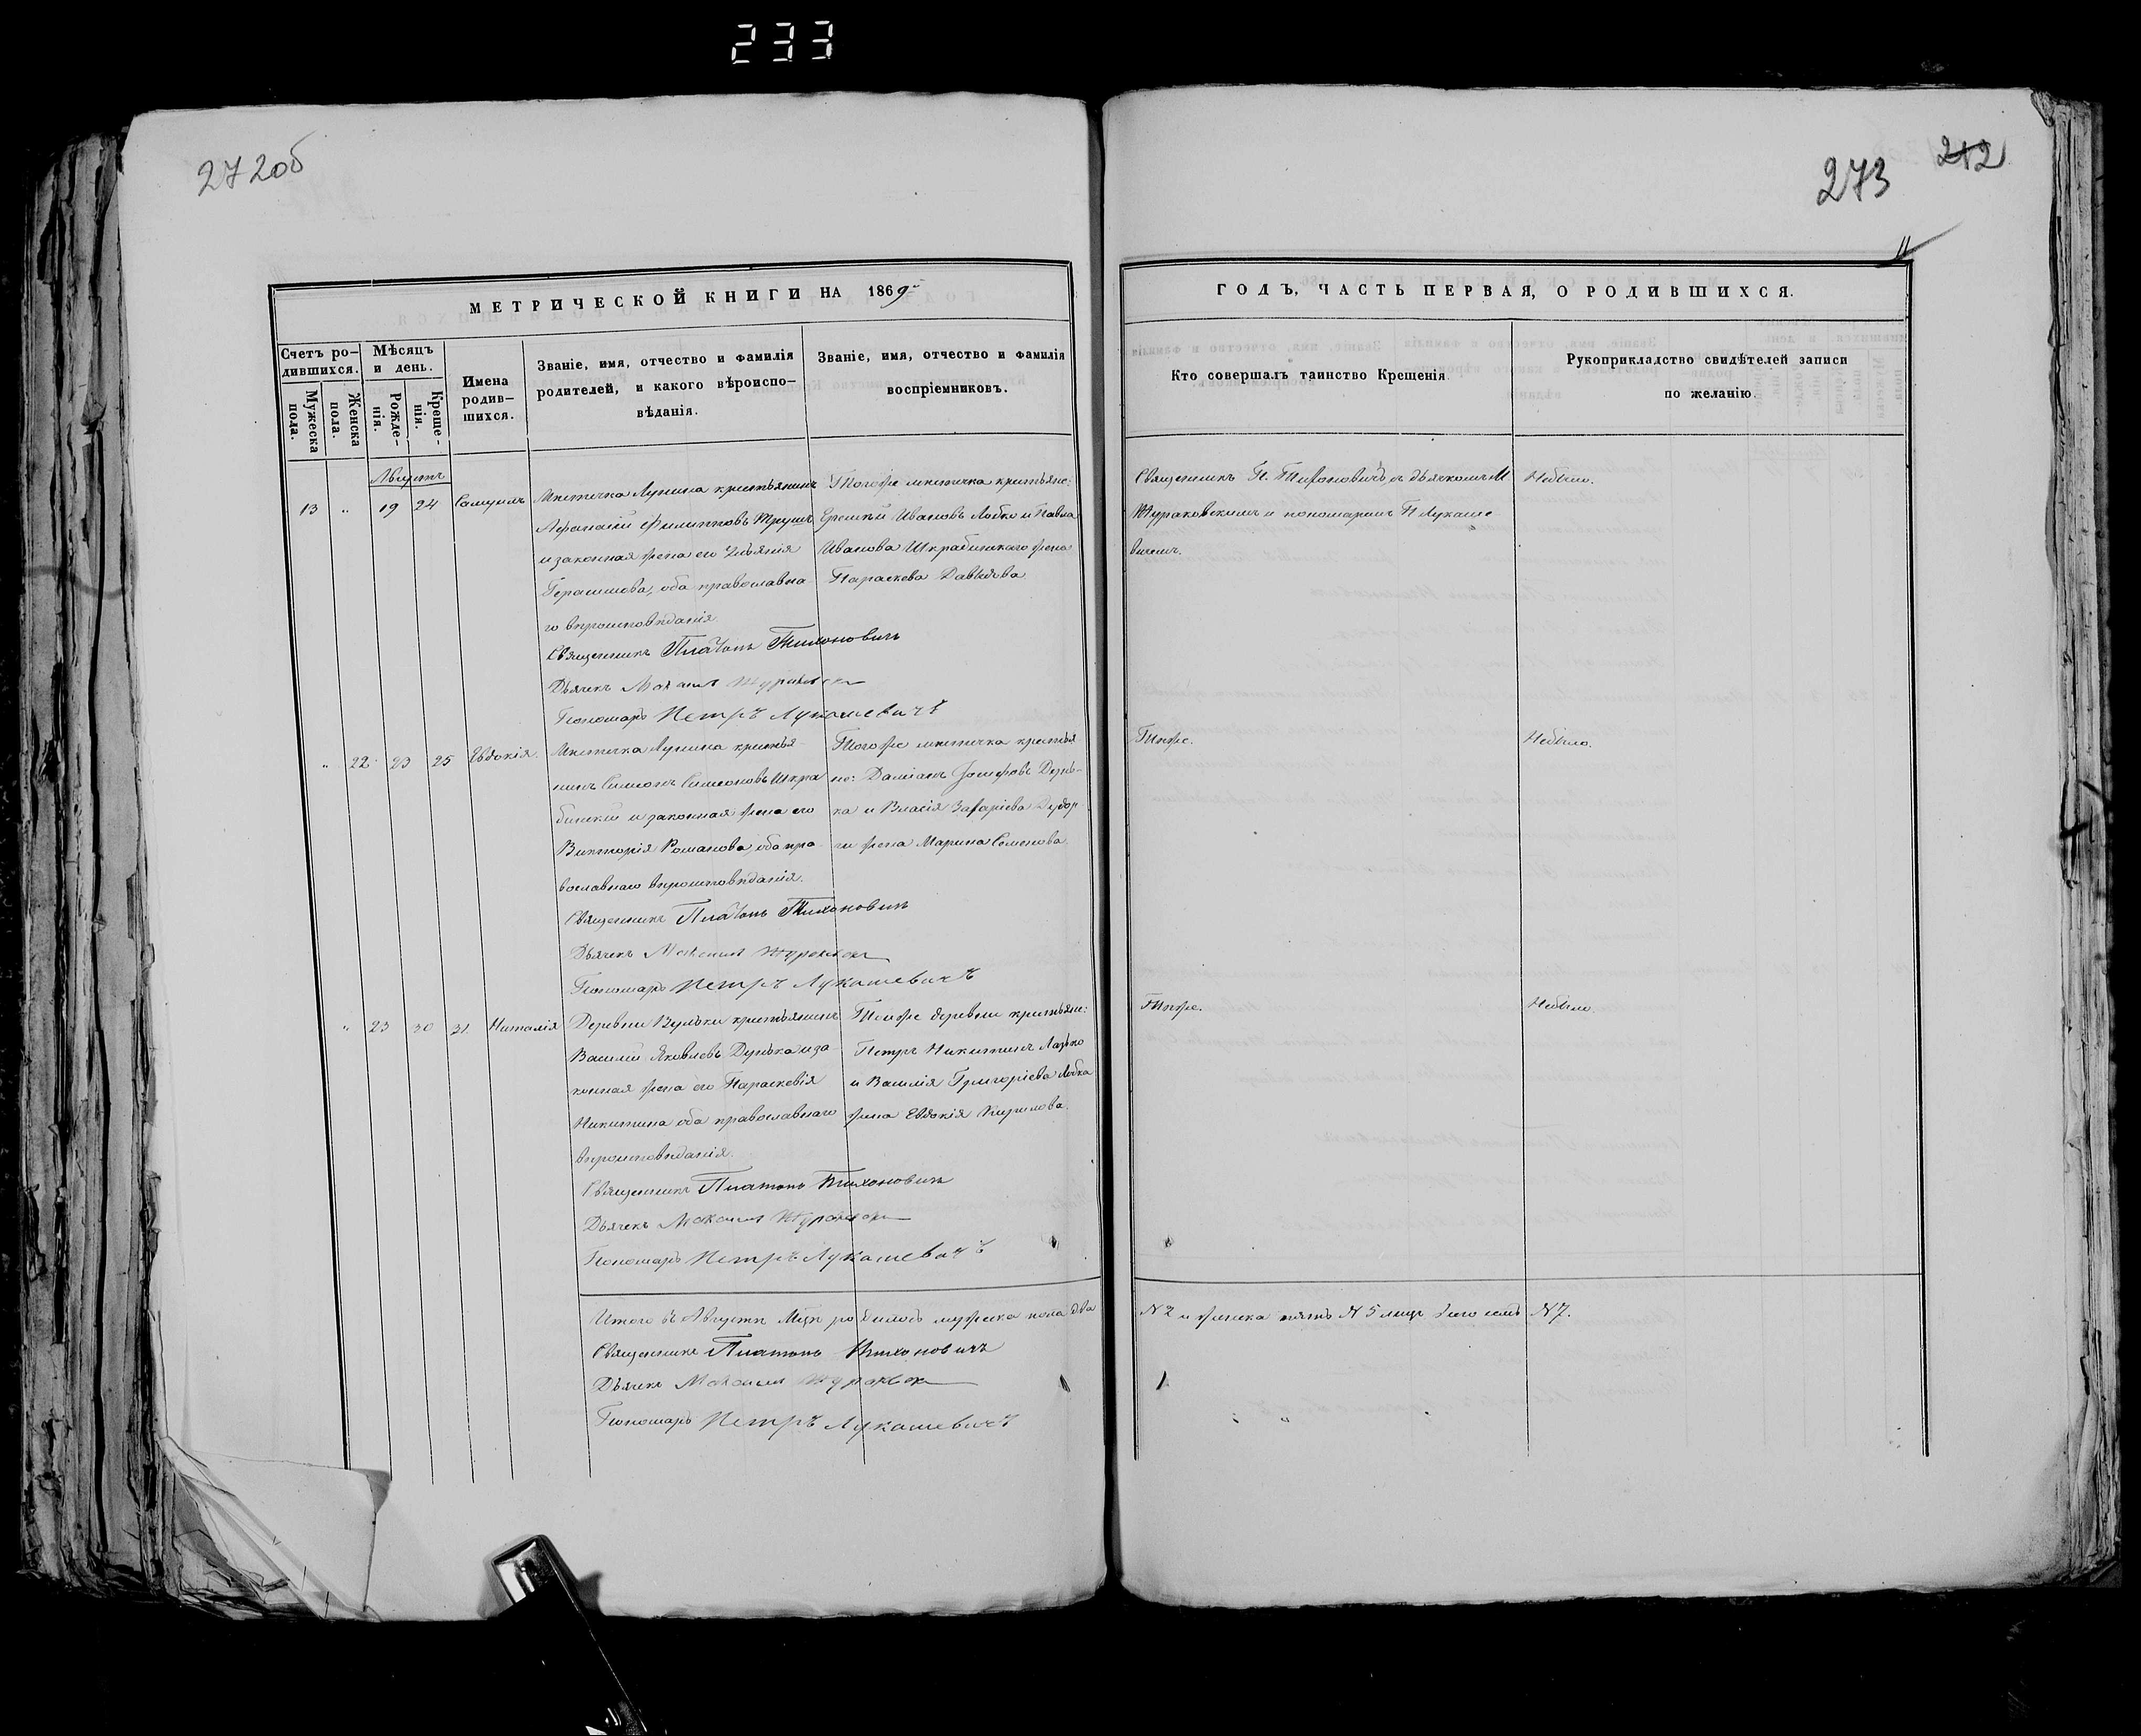 233
272об
273
212
11
МЕТРИЧЕСКОЙ КНИГИ НА 1869
ГОДЪ, ЧАСТЬ ПЕРВАЯ, О РОДИВШИХСЯ.
Счетъ ро-
дившихся.
Мужеска
пола.
Женска
пола.
Мѣсяцъ
и день.
Рожде-
нія.
Креще-
нія.
Имена
родив-
шихся.
Званіе, имя, отчество и фамилія
родителей, и какого вѣроиспо-
вѣданія.
Званіе, имя, отчество и фамилія
воспріемниковъ.
Кто совершалъ таинство Крещенія.
Рукоприкладство свидѣтелей записи
по желанію.
Августъ
13 " 19 24 Самуилъ
Мѣстечка Лунина крестьянинъ
Афанасій Филиповъ Трушъ
и законная жена его
Герасимова, оба православна
го вѣроисповѣданія.
Священникъ Платонъ Тихоновичъ
Дьячекъ
Пономарь Петръ Лукашевичъ
Тогоже мѣстечка крестьяне:
Еремѣй Ивановъ Лобко и Павла
Иванова Шкрабинскаго жена
Параскева Давидова
Священникъ П. Тихоновичъ съ дьячкомъ М
и пономаремъ П Лукаше
вичемъ.
Небыло.
" 22 23 25 Евдокія.
Мѣстечка Лунина крестья-
нинъ Симеонъ Симеоновъ Шкра
бинскій и законная жена его
Викторія Романова, оба пра-
вославнаго вѣроисповѣданія.
Священникъ Платонъ Тихоновичъ
Дьячекъ
Пономарь Петръ Лукашевичъ
Тогоже мѣстечка крестья
не: Даміанъ Іосифовъ
ка и Власія Захаріева
жена Марина Семенова
Тѣже.
Небыло.
" 23 30 31 Наталія
Деревни Вульки крестьянинъ
Василій Яковлевъ Дунька и за-
конная жена его Параскевія
Никитина оба православнаго
вѣроисповѣданія.
Священникъ Платонъ Тихоновичъ
Дьячекъ
Пономарь Петръ Лукашевичъ
Тойже деревни крестьяне:
Петръ Никитинъ
и Василія Григоріева Лобка
жена Евдокія Кирилова.
Тѣже.
Небыло.
Итого въ Августѣ Мцѣ родилось мужеска пола два
N 2 и женска пять N 5 всего семь N 7.
Священникъ Платонъ Тихоновичъ
Дьячекъ
Пономарь Петръ Лукашевичъ